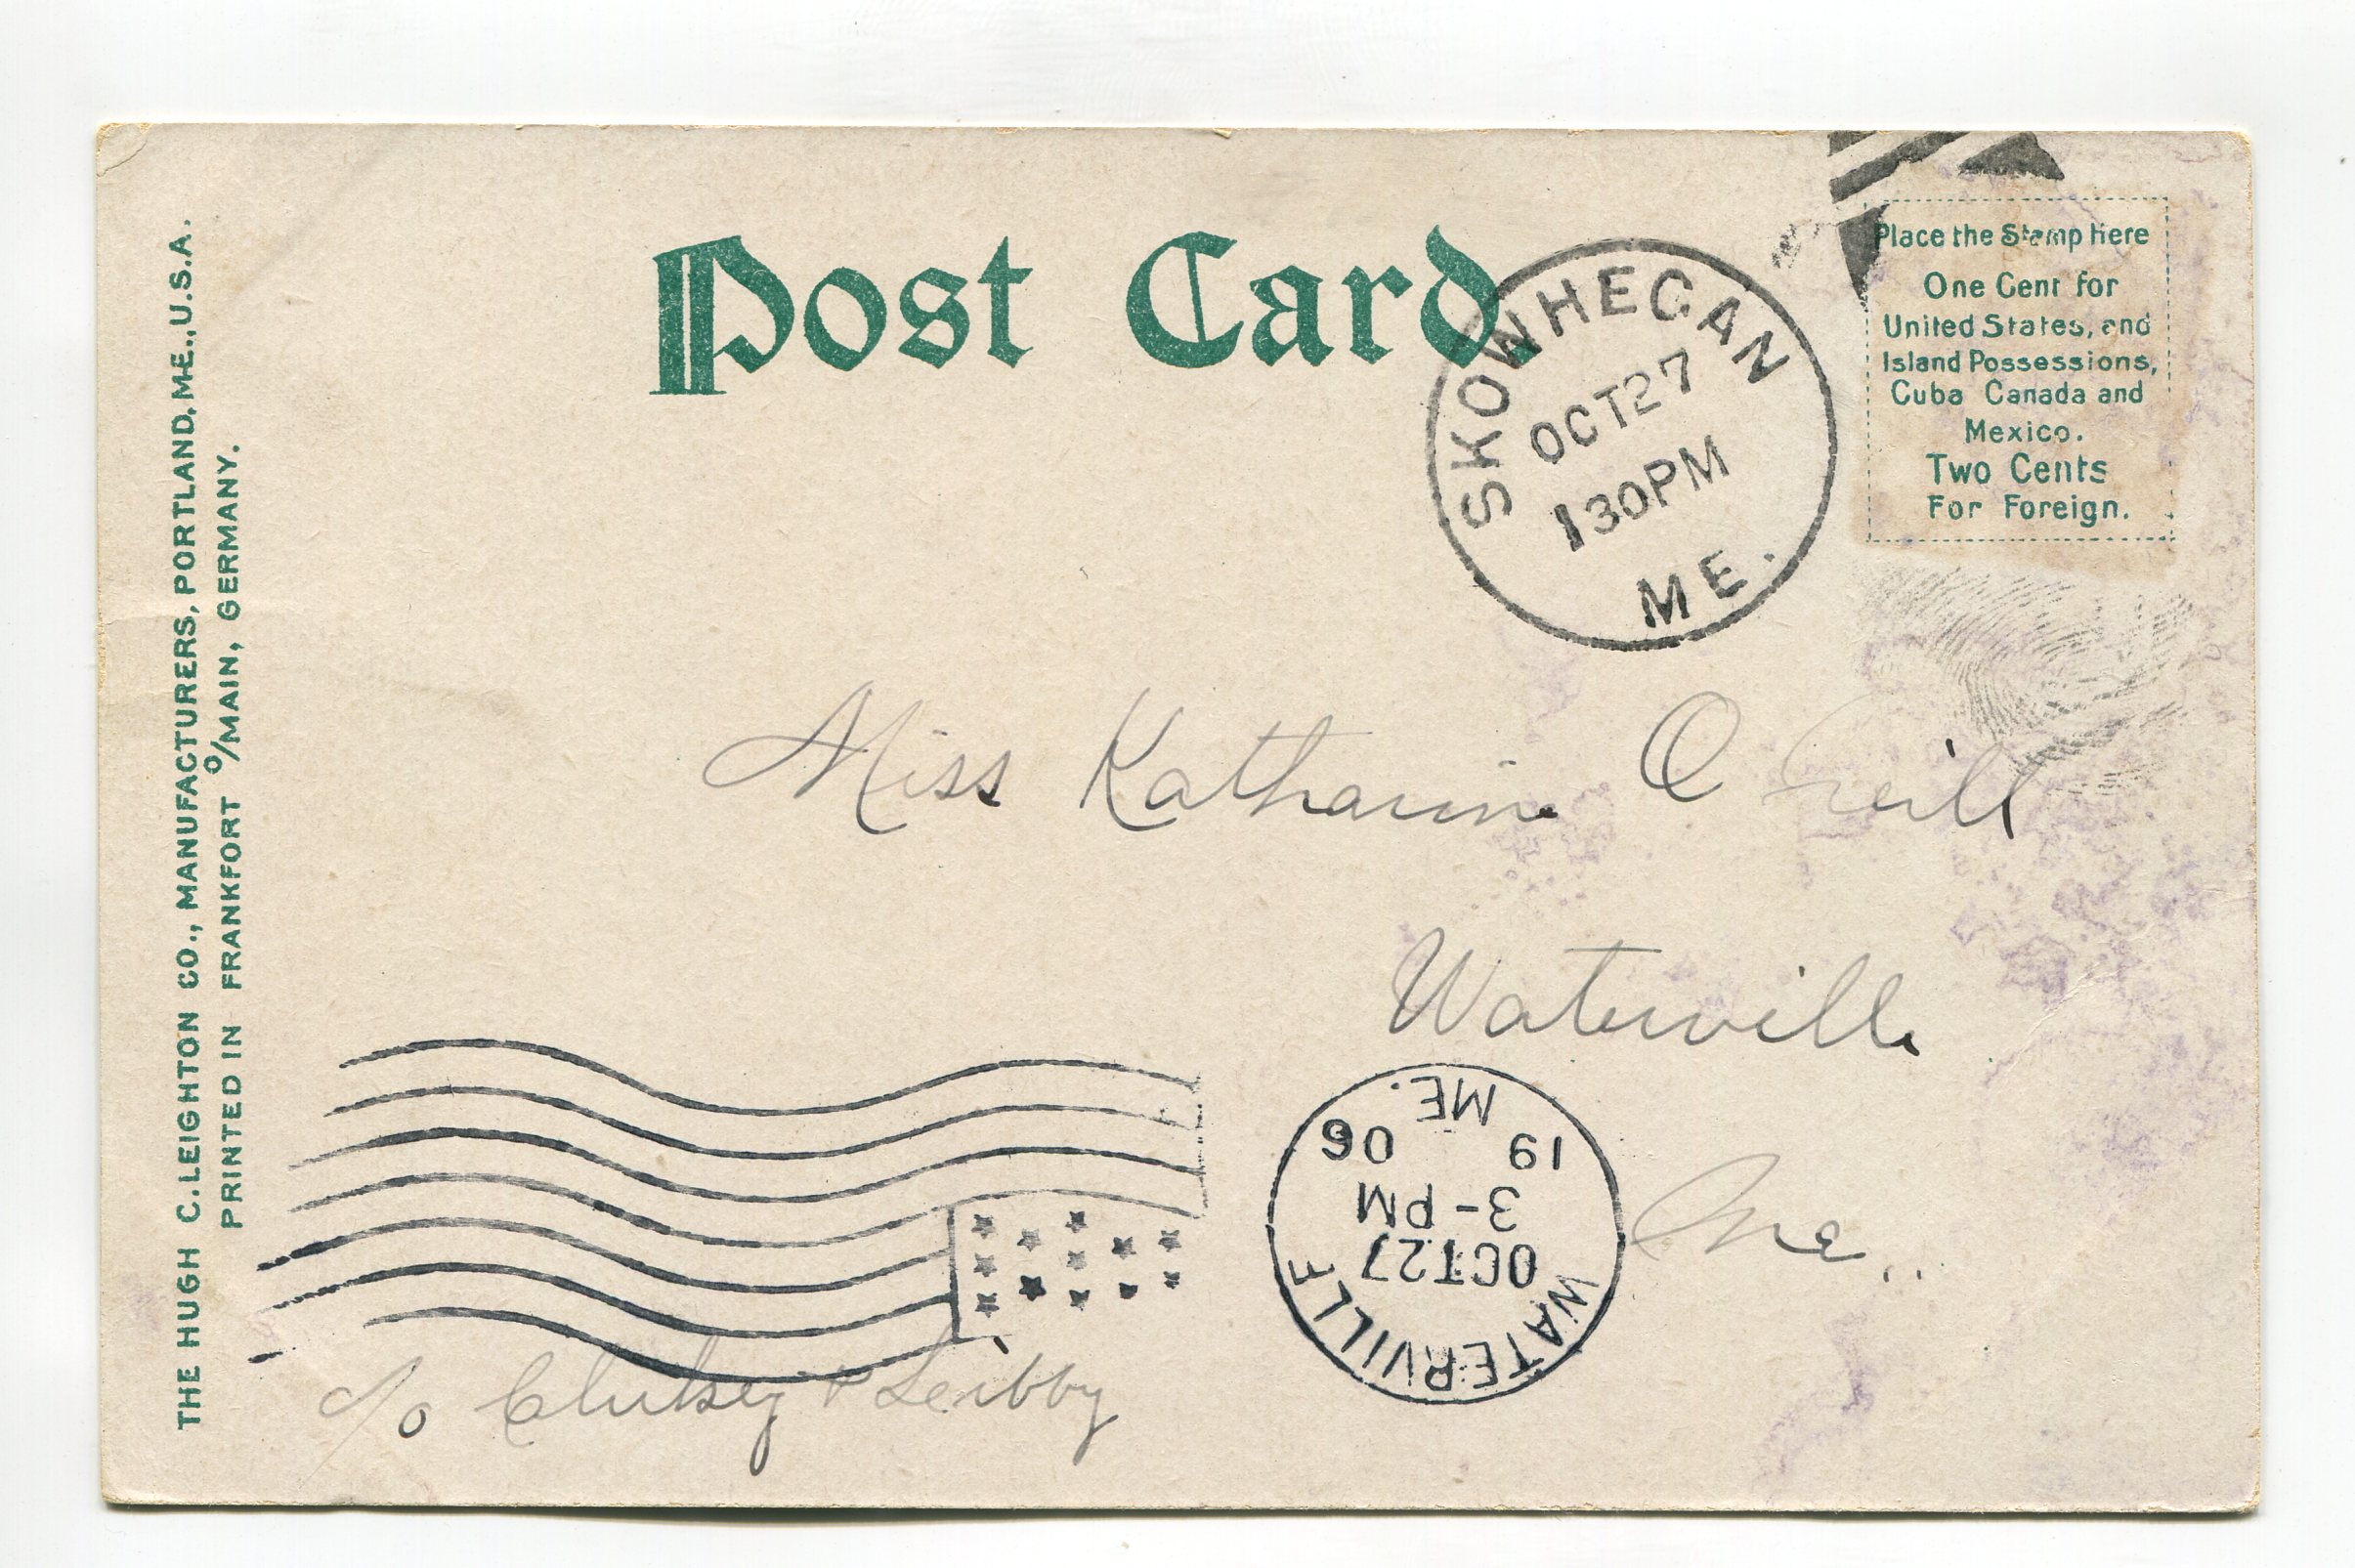 Post Card.
THE HUGH C. LEIGHTON CO., MANUFACTURERS, PORTLAND, ME., U.S.A.
PRINTED IN FRANKFORT o/MAIN, GERMANY.
Place the Stamp Here
One Cent for
United States, and
Island Possessions,
Cuba Canada and
Mexico.
Two Cents
For Foreign.
SKOWHEGAN
OCT 27
1 30 PM
ME.
Miss Katharine O'Neill
Waterville
Me.
WATERVILLE
OCT 27
3 - PM
19 06
ME.
c/o Clukey & Leibby